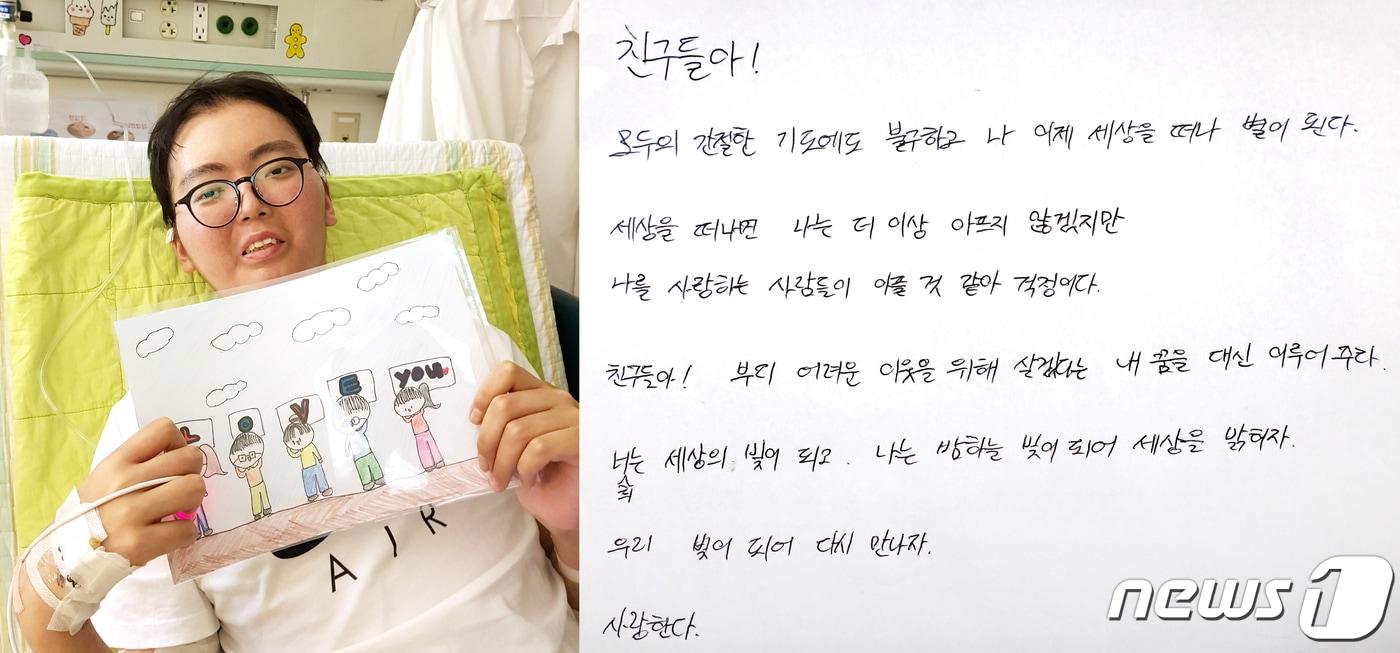 L O V E YOU
AIR
친구들아!
모두의 간절한 기도에도 불구하고 나 이제 세상을 떠나 별이 된다.
세상을 떠나면 나는 더 이상 아프지 않겠지만
나를 사랑하는 사람들이 아플 것 같아 걱정이다.
친구들아! 부디 어려운 이웃을 위해 살겠다는 내 꿈을 대신 이루어 주라.
너희는 세상의 빛이 되고. 나는 밤하늘 빛이 되어 세상을 밝히자.
우리 빛이 되어 다시 만나자.
사랑한다.
news1